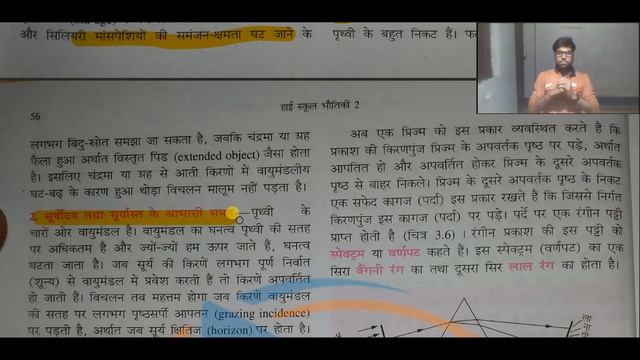 और सिलियरी मांसपेशियों की समंजन-क्षमता घट जाने के
पृथ्वी के बहुत निकट हैं।
56
हाई स्कूल भौतिकी 2
लगभग बिंदु-स्रोत समझा जा सकता है, जबकि चंद्रमा या ग्रह
फैला हुआ अर्थात विस्तृत पिंड (extended object) जैसा होता
है। इसलिए चंद्रमा या ग्रह से आती किरणों में वायुमंडलीय
घट-बढ़ के कारण हुआ थोड़ा विचलन मालूम नहीं पड़ता है।
2. सूर्योदय तथा सूर्यास्त के आभासी पृथ्वी के
चारों ओर वायुमंडल है। वायुमंडल का घनत्व पृथ्वी की सतह
पर अधिकतम है और ज्यों-ज्यों हम ऊपर जाते हैं, घनत्व
घटता जाता है। जब सूर्य की किरणें लगभग पूर्ण निर्वात
(शून्य) से वायुमंडल में प्रवेश करती हैं तो किरणें अपवर्तित
हो जाती हैं। विचलन तब महत्तम होगा जब किरणें वायुमंडल
की सतह पर लगभग पृष्ठसर्पी आपतन (grazing incidence)
पर पड़ती है, अर्थात जब सूर्य क्षितिज (horizon) पर होता है।
अब एक प्रिज्म को इस प्रकार व्यवस्थित करते हैं कि
प्रकाश की किरणपुंज प्रिज्म के अपवर्तक पृष्ठ पर पड़े, अर्थात
आपतित हो और अपवर्तित होकर प्रिज्म के दूसरे अपवर्तक
पृष्ठ से बाहर निकले। प्रिज्म के दूसरे अपवर्तक पृष्ठ के निकट
एक सफेद कागज (पर्दा) इस प्रकार रखते हैं कि जिससे निर्गत
किरणपुंज इस कागज (पर्दा) पर पड़े। पर्दे पर एक रंगीन पट्टी
प्राप्त होती है (चित्र 3.6) । रंगीन प्रकाश की इस पट्टी को
स्पेक्ट्रम या वर्णपट कहते हैं। इस स्पेक्ट्रम (वर्णपट) का एक
सिरा बैंगनी रंग का तथा दूसरा सिर लाल रंग का होता है।